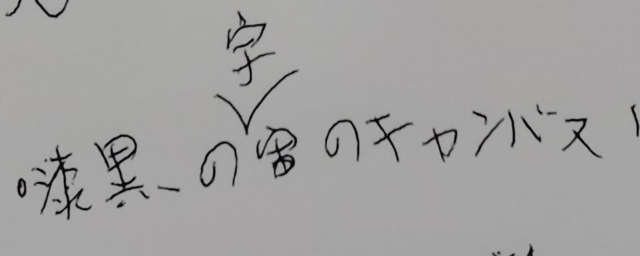 漆黒の宇宙のキャンバス